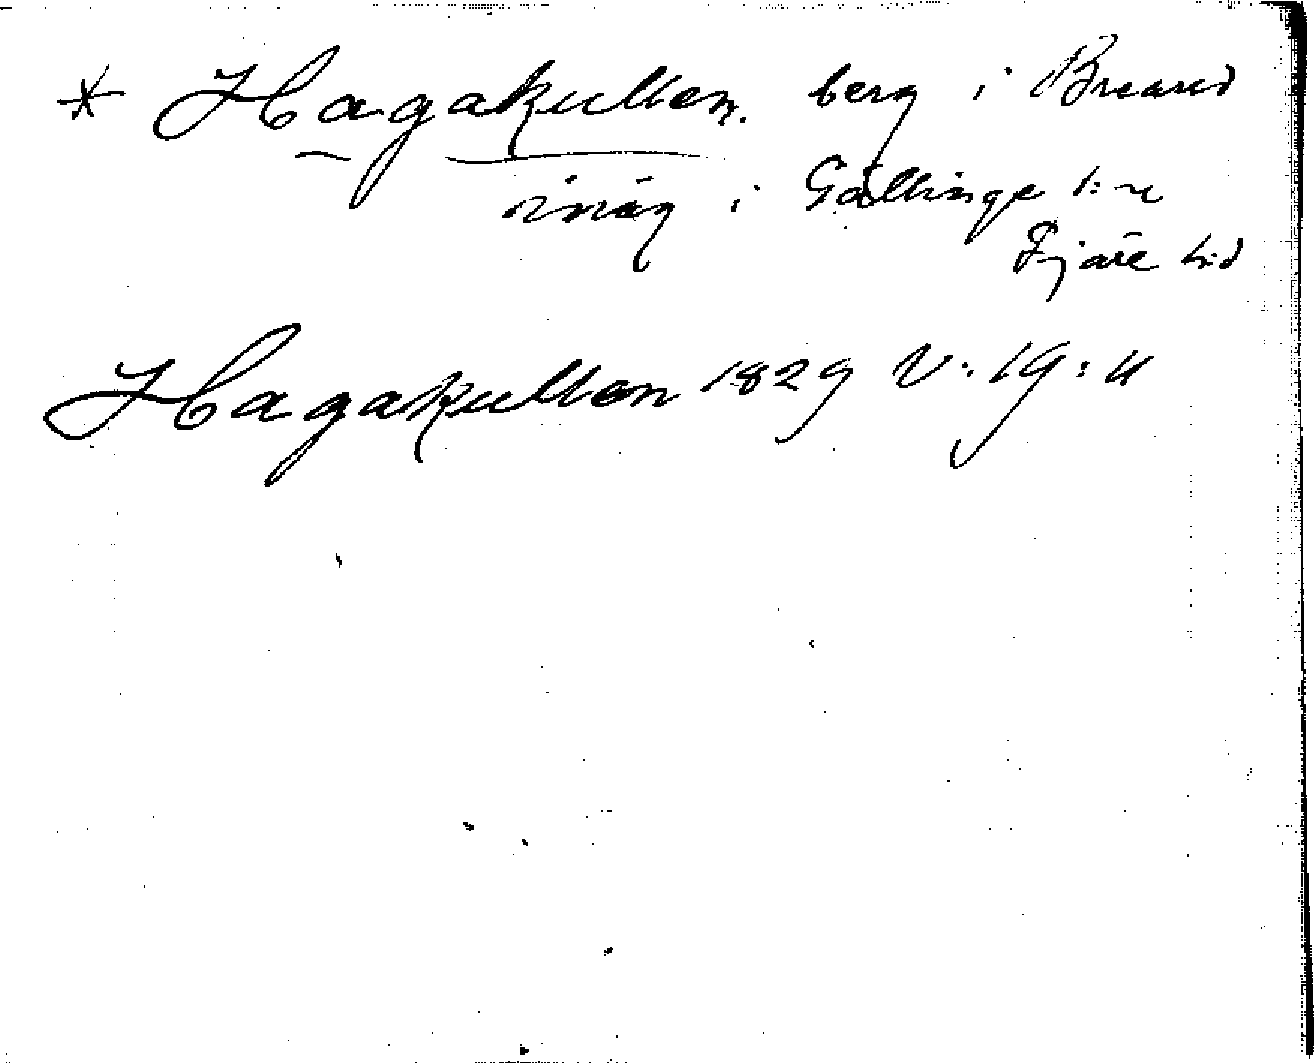 * Hagakullen. berg i Breared
inäg i Gällinge s:n
Fjäre h:d
Hagakullen 1829 V: 19: 4